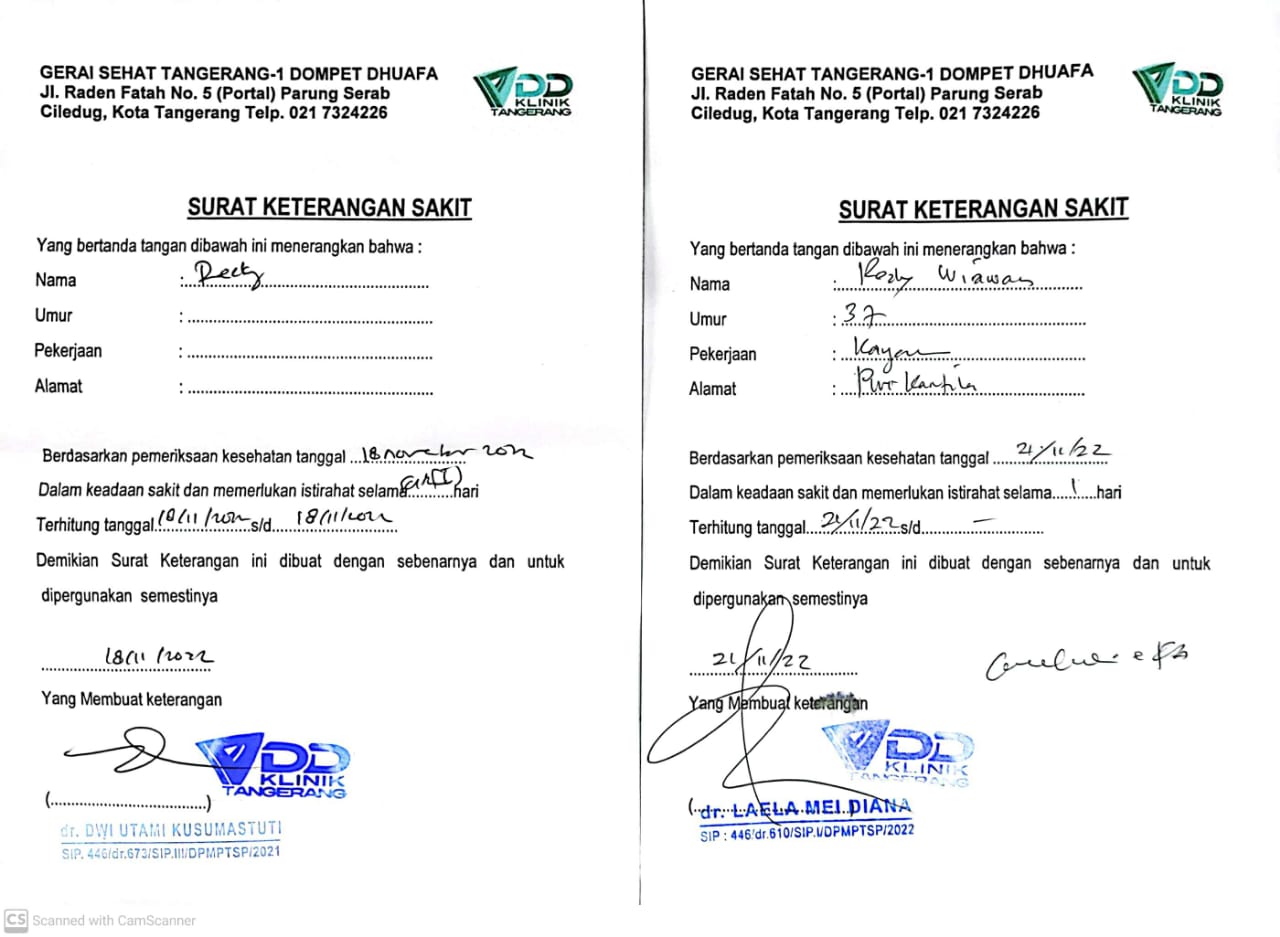 GERAI SEHAT TANGERANG-1 DOMPET DHUAFA
Jl. Raden Fatah No. 5 (Portal) Parung Serab
Ciledug, Kota Tangerang Telp. 021 7324226
DD
KLINIK
TANGERANG
SURAT KETERANGAN SAKIT
Yang bertanda tangan dibawah ini menerangkan bahwa :
Nama :
Umur :
Pekerjaan :
Alamat :
Berdasarkan pemeriksaan kesehatan tanggal 18 november 2022
Dalam keadaan sakit dan memerlukan istirahat selama hari
Terhitung tanggal 18/11/2022 s/d. 18/11/2022
Demikian Surat Keterangan ini dibuat dengan sebenarnya dan untuk
dipergunakan semestinya
18/11/2022
Yang Membuat keterangan
DD
KLINIK
TANGERANG
(....................................)
dr. DWI UTAMI KUSUMASTUTI
SIP. 446/dr.673/SIP.III/DPMPTSP/2021
GERAI SEHAT TANGERANG-1 DOMPET DHUAFA
Jl. Raden Fatah No. 5 (Portal) Parung Serab
Ciledug, Kota Tangerang Telp. 021 7324226
DD
KLINIK
TANGERANG
SURAT KETERANGAN SAKIT
Yang bertanda tangan dibawah ini menerangkan bahwa :
Nama : Wirawan
Umur : 37
Pekerjaan :
Alamat :
Berdasarkan pemeriksaan kesehatan tanggal 21/11/22
Dalam keadaan sakit dan memerlukan istirahat selama 1 hari
Terhitung tanggal 21/11/22 s/d. –
Demikian Surat Keterangan ini dibuat dengan sebenarnya dan untuk
dipergunakan semestinya
21/11/22
Yang Membuat keterangan
DD
KLINIK
TANGERANG
dr. LAELA MEI DIANA
SIP : 446/dr.610/SIP.I/DPMPTSP/2022
CS Scanned with CamScanner